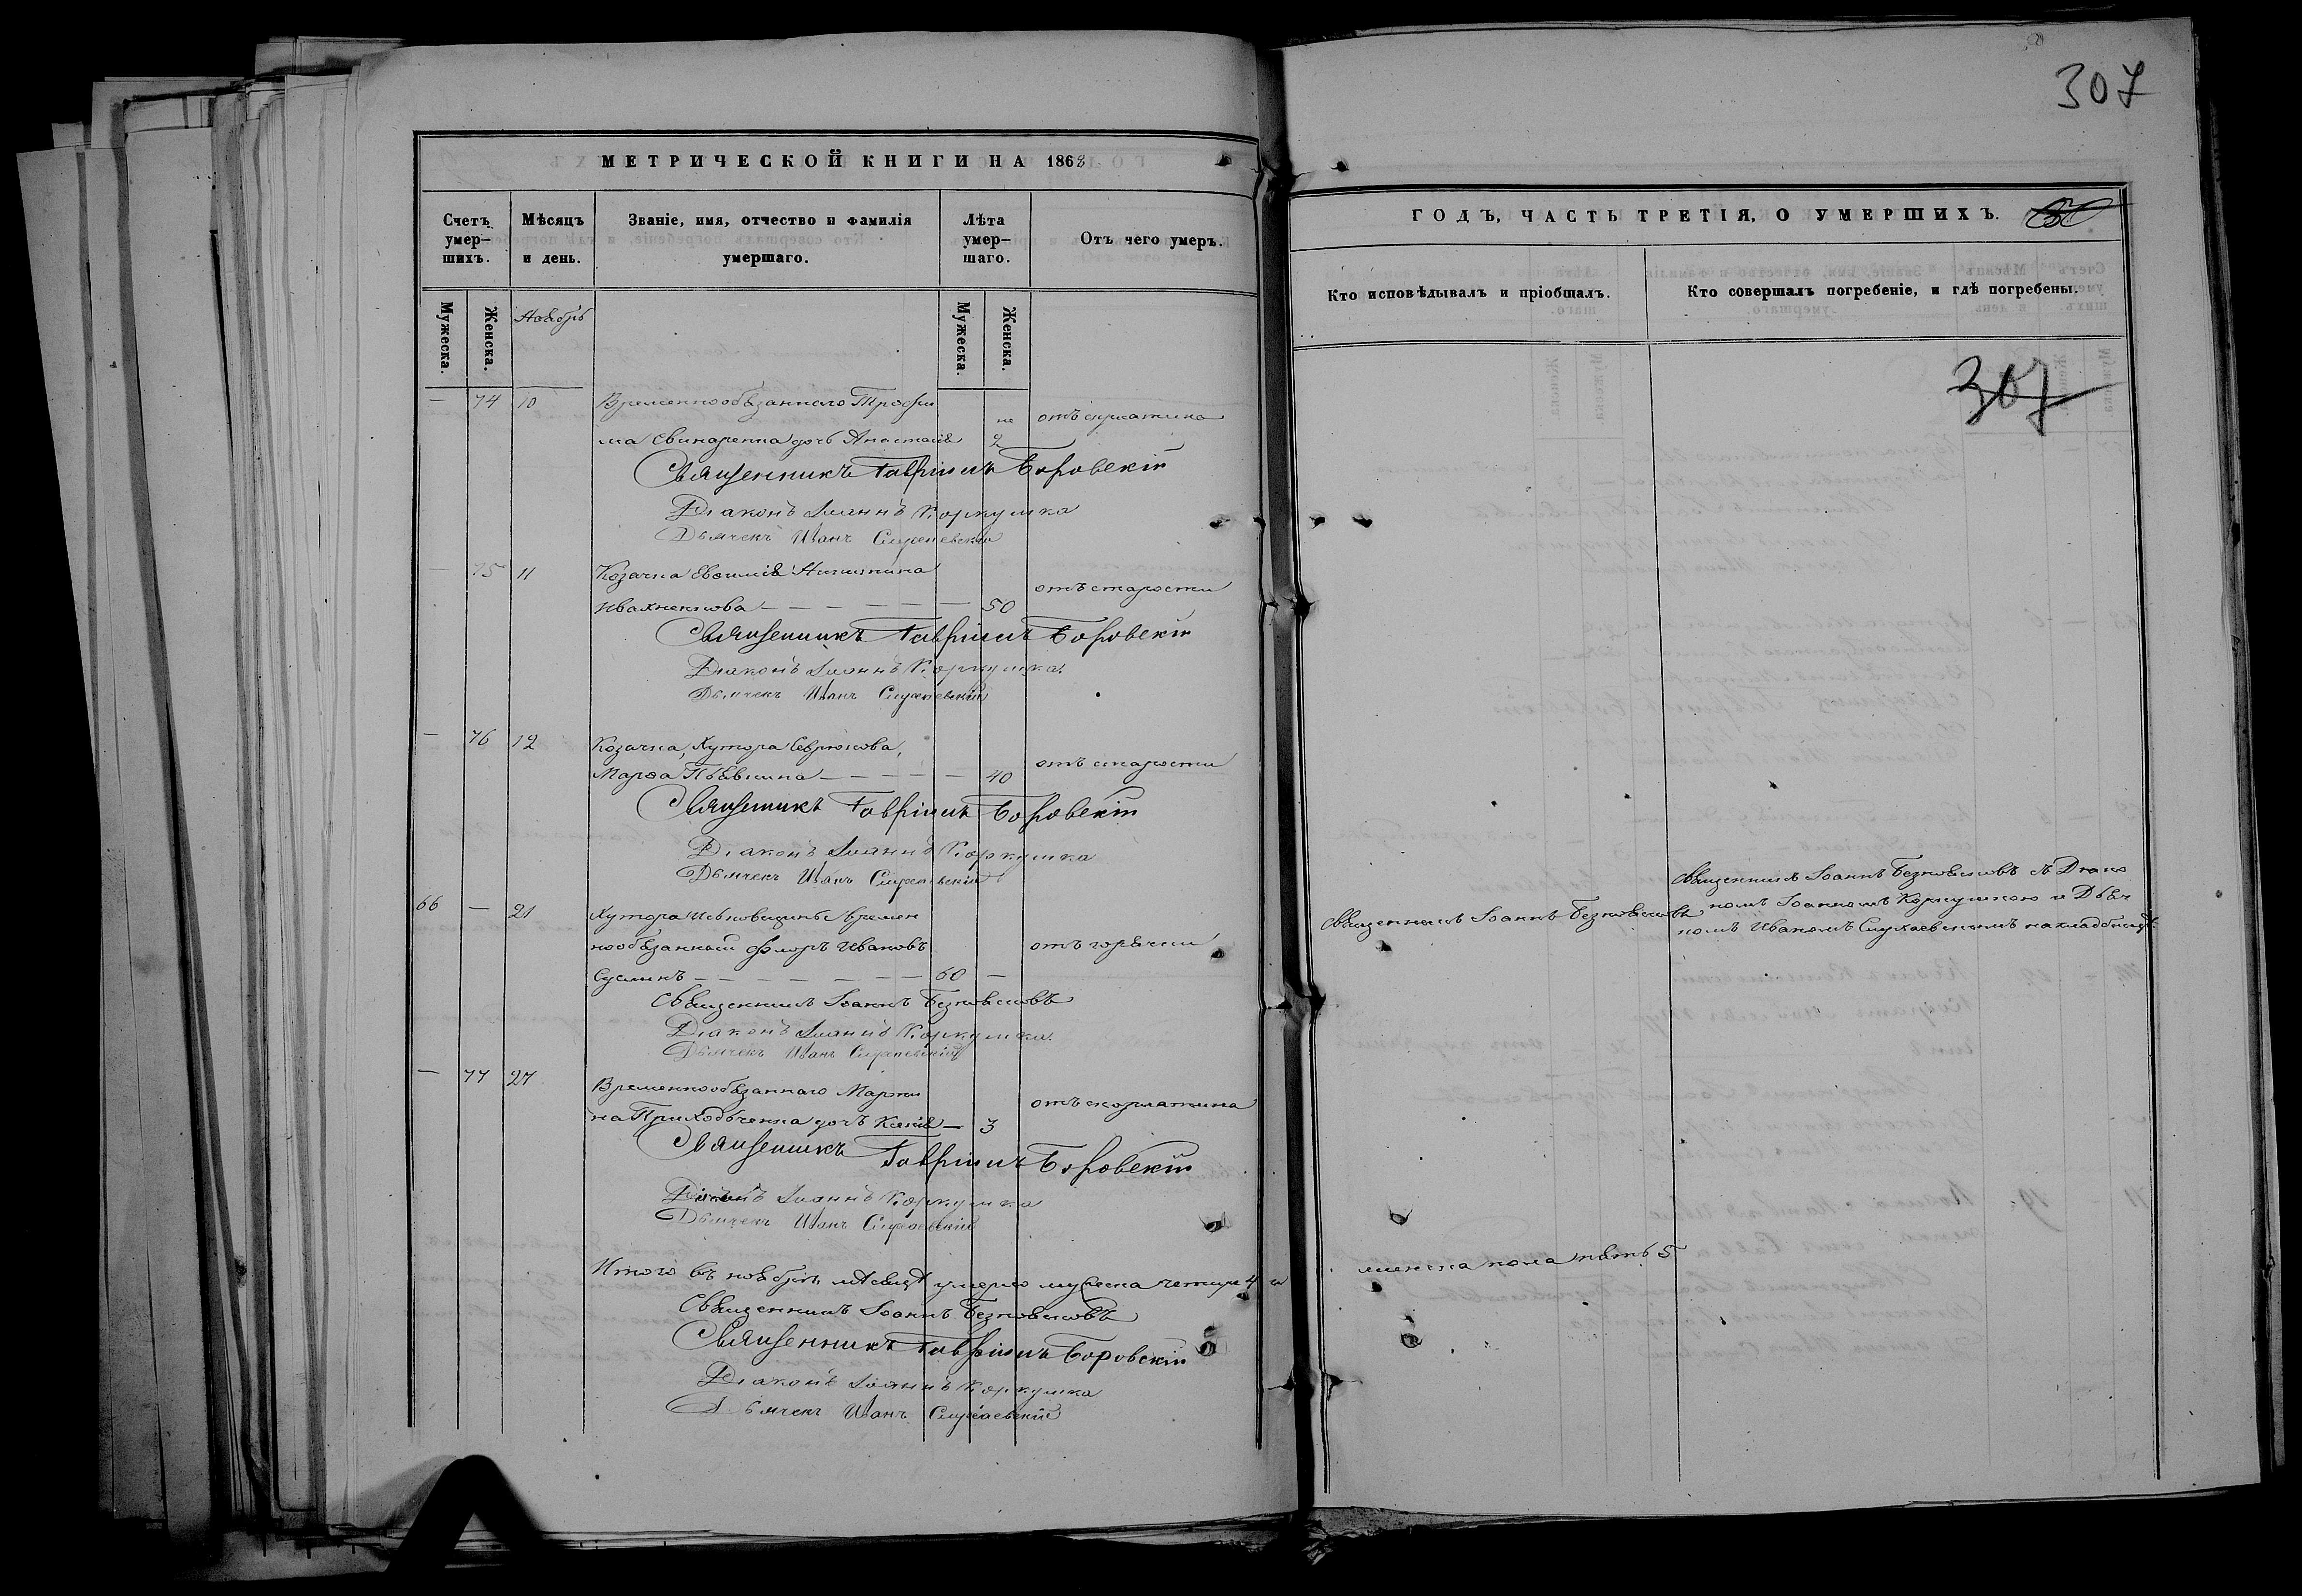 307
МЕТРИЧЕСКОЙ КНИГИ НА 1863
ГОДЪ, ЧАСТЬ ТРЕТІЯ, О УМЕРШИХЪ.
Счетъ умер-шихъ.
Мѣсяцъ и день.
Званіе, имя, отчество и фамилія умершаго.
Лѣта умер-шаго.
Отъ чего умеръ.
Кто исповѣдывалъ и пріобщалъ.
Кто совершалъ погребеніе, и гдѣ погребены.
Мужеска.
Женска.
Ноябрь
Мужеска.
Женска.
307
— 74 10 Временнообязаннаго Трофи
ма Свинаренка дочь Анастасія 2
Священникъ Гавріилъ Боровскій
Діаконъ Іоаннъ Коркушка
Дьячекъ Иванъ Слухаевскій
— 75 11 Козачка Евфимія Никитина
Ивахненкова — 50 отъ старости
Священникъ Гавріилъ Боровскій
Діаконъ Іоаннъ Коркушка
Дьячекъ Иванъ Слухаевскій
— 76 12 Козачка, Хутора Севрюкова,
Марѳа Пѣвкина — 40 отъ старости
Священникъ Гавріилъ Боровскій
Діаконъ Іоаннъ Коркушка
Дьячекъ Иванъ Слухаевскій
66 — 21 Хутора времен
нообязанный Флоръ Ивановъ отъ горячки
Сусликъ — 60 —
Священникъ Іоаннъ Безновсковъ
Священникъ Іоаннъ Безновсковъ съ Діако
номъ Іоанномъ Коркушкою и Дьяч
комъ Иваномъ Слухаевскимъ на кладбищѣ
Священникъ Іоаннъ
Діаконъ Іоаннъ Коркушка
Дьячекъ Иванъ Слухаевскій
— 77 27 Временнообязаннаго Марти
на Приходченка дочь Ксенія — 3 отъ скорлатина
Священникъ Гавріилъ Боровскій
Діаконъ Іоаннъ Коркушка
Дьячекъ Иванъ Слухаевскій
Итого въ ноябрѣ мѣсяцѣ умерло мужеска четыре 4 и
женска пола пять 5
Священникъ Іоаннъ
Священникъ Гавріилъ Боровскій
Діаконъ Іоаннъ Коркушка
Дьячекъ Иванъ Слухаевскій